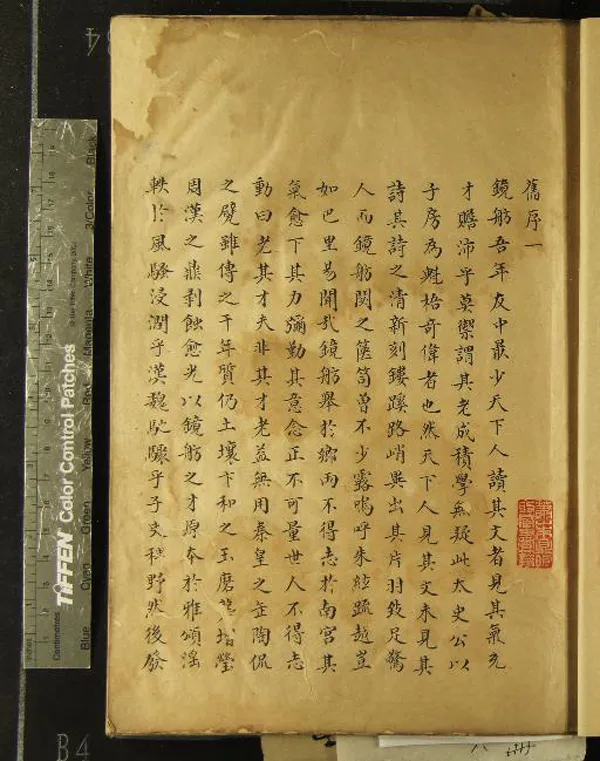 舊序一
鏡舫吾年友中最少天下人讀其文者見其氣充
才贍沛乎莫禦謂其老成積學無疑此太史公以
子房為魁梧奇偉者也然天下人見其文未見其
詩其詩之清新刻鏤蹊路峭異出其片羽足驚
人而鏡舫閟之篋笥曾不少露嗚呼朱絃疏越豈
如巴里易聞哉鏡舫舉於鄉而不得志於南宮其
氣愈下其力彌勤其意念正不可量世人不得志
動曰老其才夫非其才老益無用秦皇之缶陶侃
之甓雖傳之千年質仍土壤卞和之玉磨礱增瑩
周漢之鼎剥蝕愈光以鏡舫之才原本於雅頌滛
軼於風騷浸潤乎漢魏馳驟乎子史稗野然後發
TIFFEN Color Control Patches
Centimetres
Blue Cyan Green Yellow Red Magenta White 3/Color Black
B4